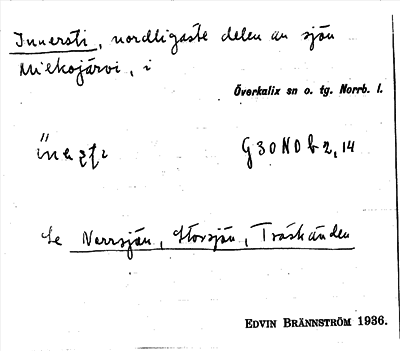 Innersti, nordligaste delen av sjön
Miekojärvi, i
Överkalix sn o. tg. Norrb. l.
G30N0b2,14
Se Norrsjön, Storsjön, Träskänden
EDVIN BRÄNNSTRÖM 1936.